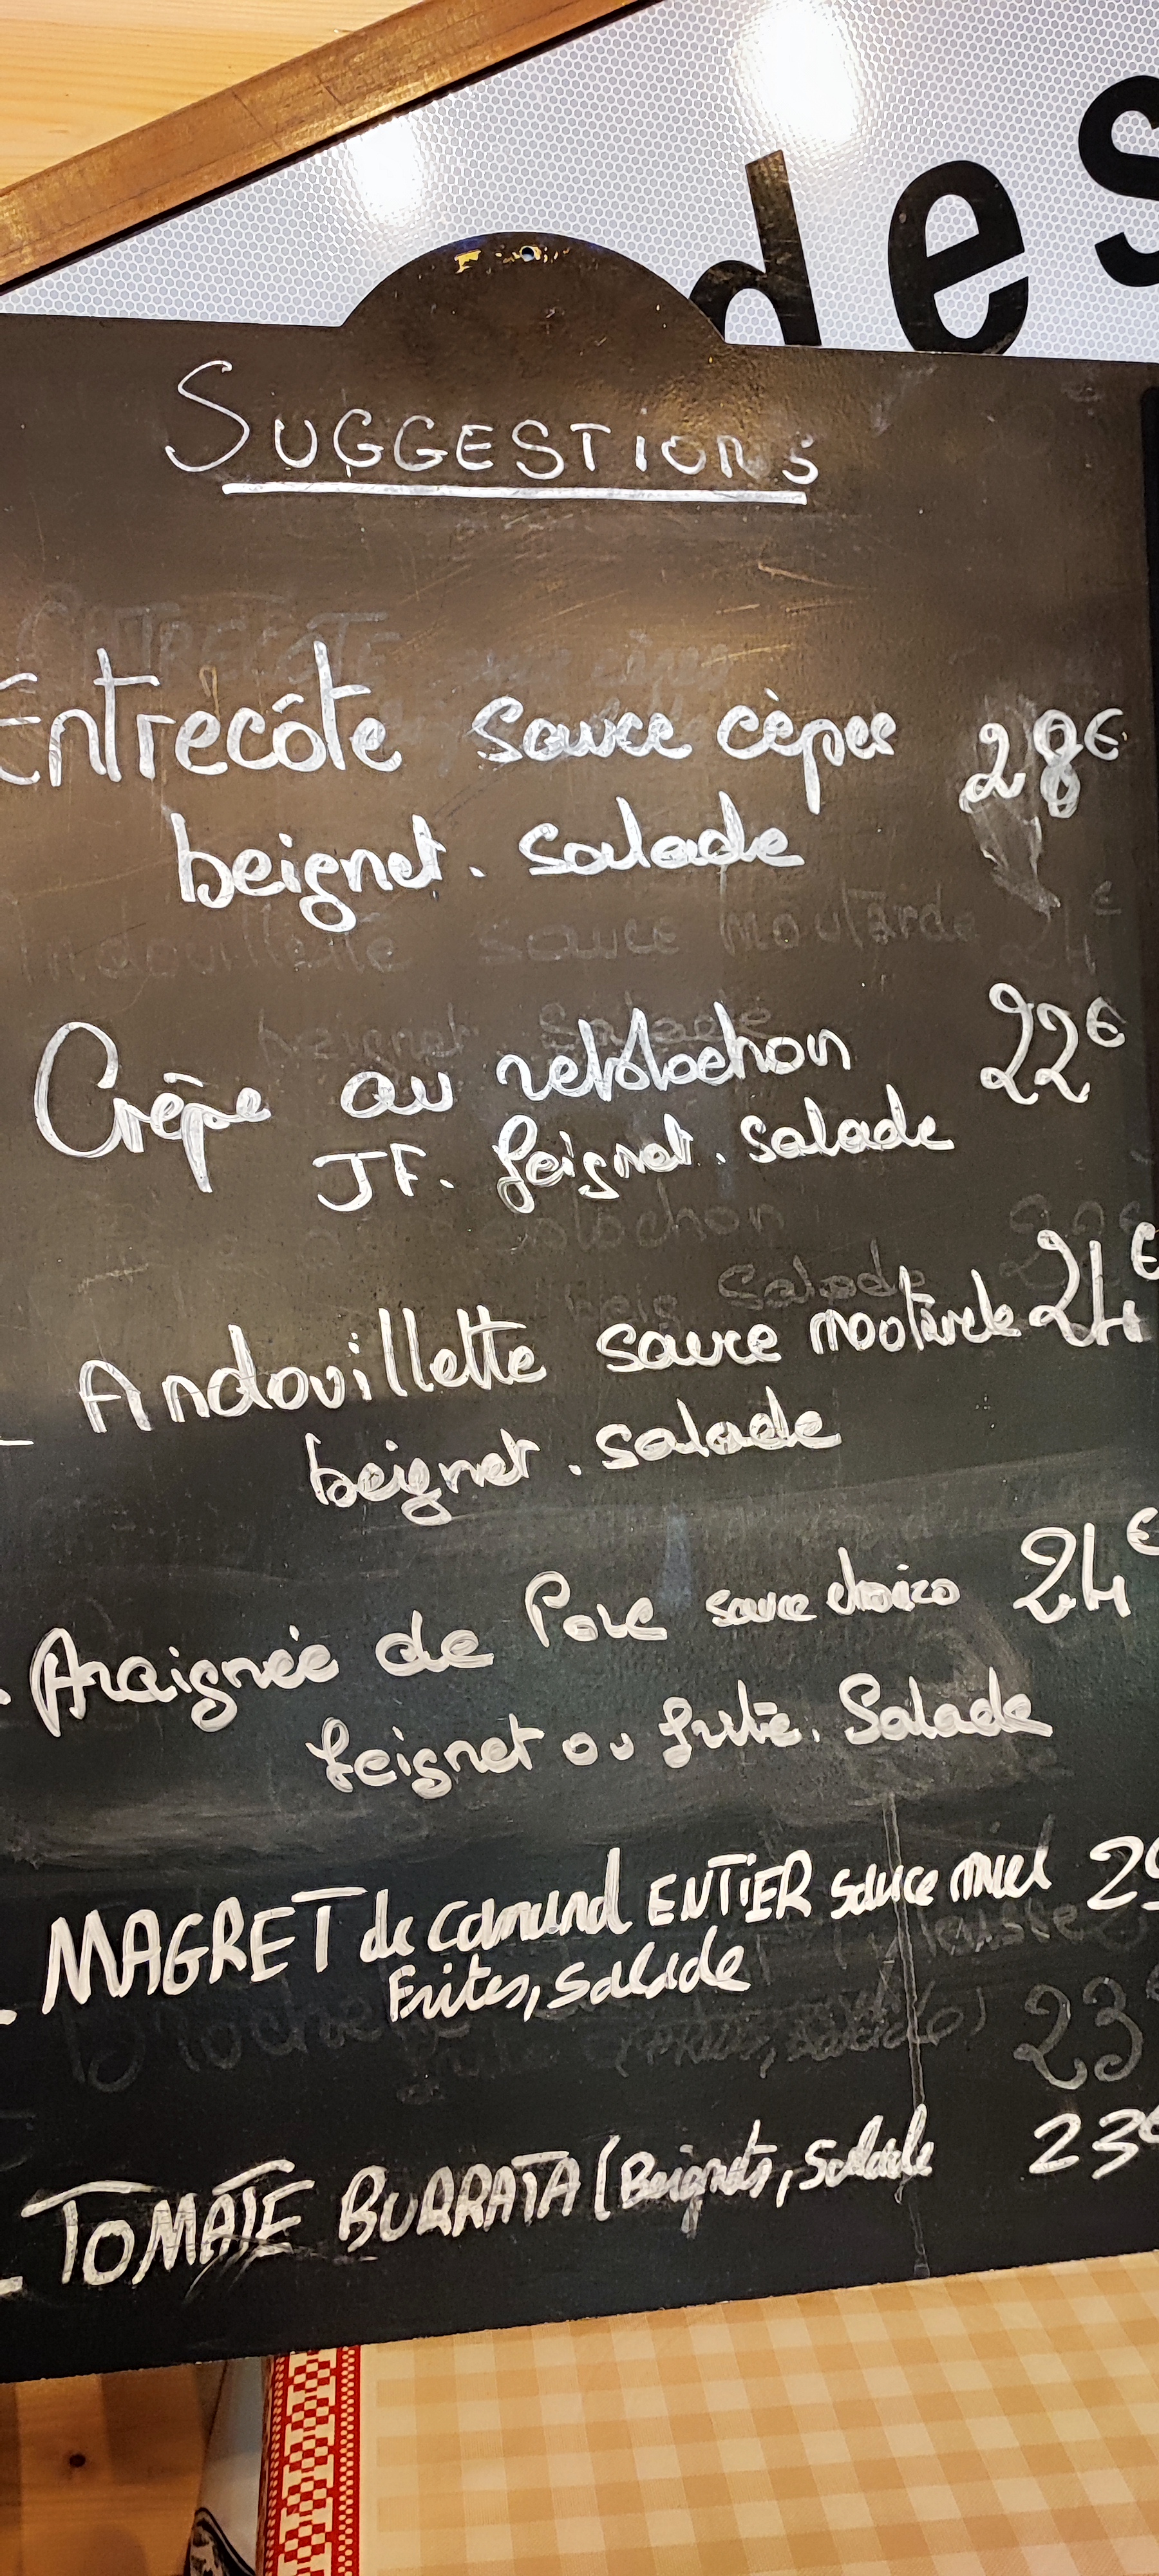 des
SUGGESTIONS
Entrecôte sauce cèpes 28€
beignet. Salade
Crêpe au reblochon 22€
JF. beignet. Salade
Andouillette sauce moutarde 24€
beignet. salade
Araignée de Porc sauce chorizo 24€
beignet ou frite. Salade
MAGRET de canard ENTIER sauce miel
Frites, salade
TOMATE BURRATA (Beignets, Salade 23€